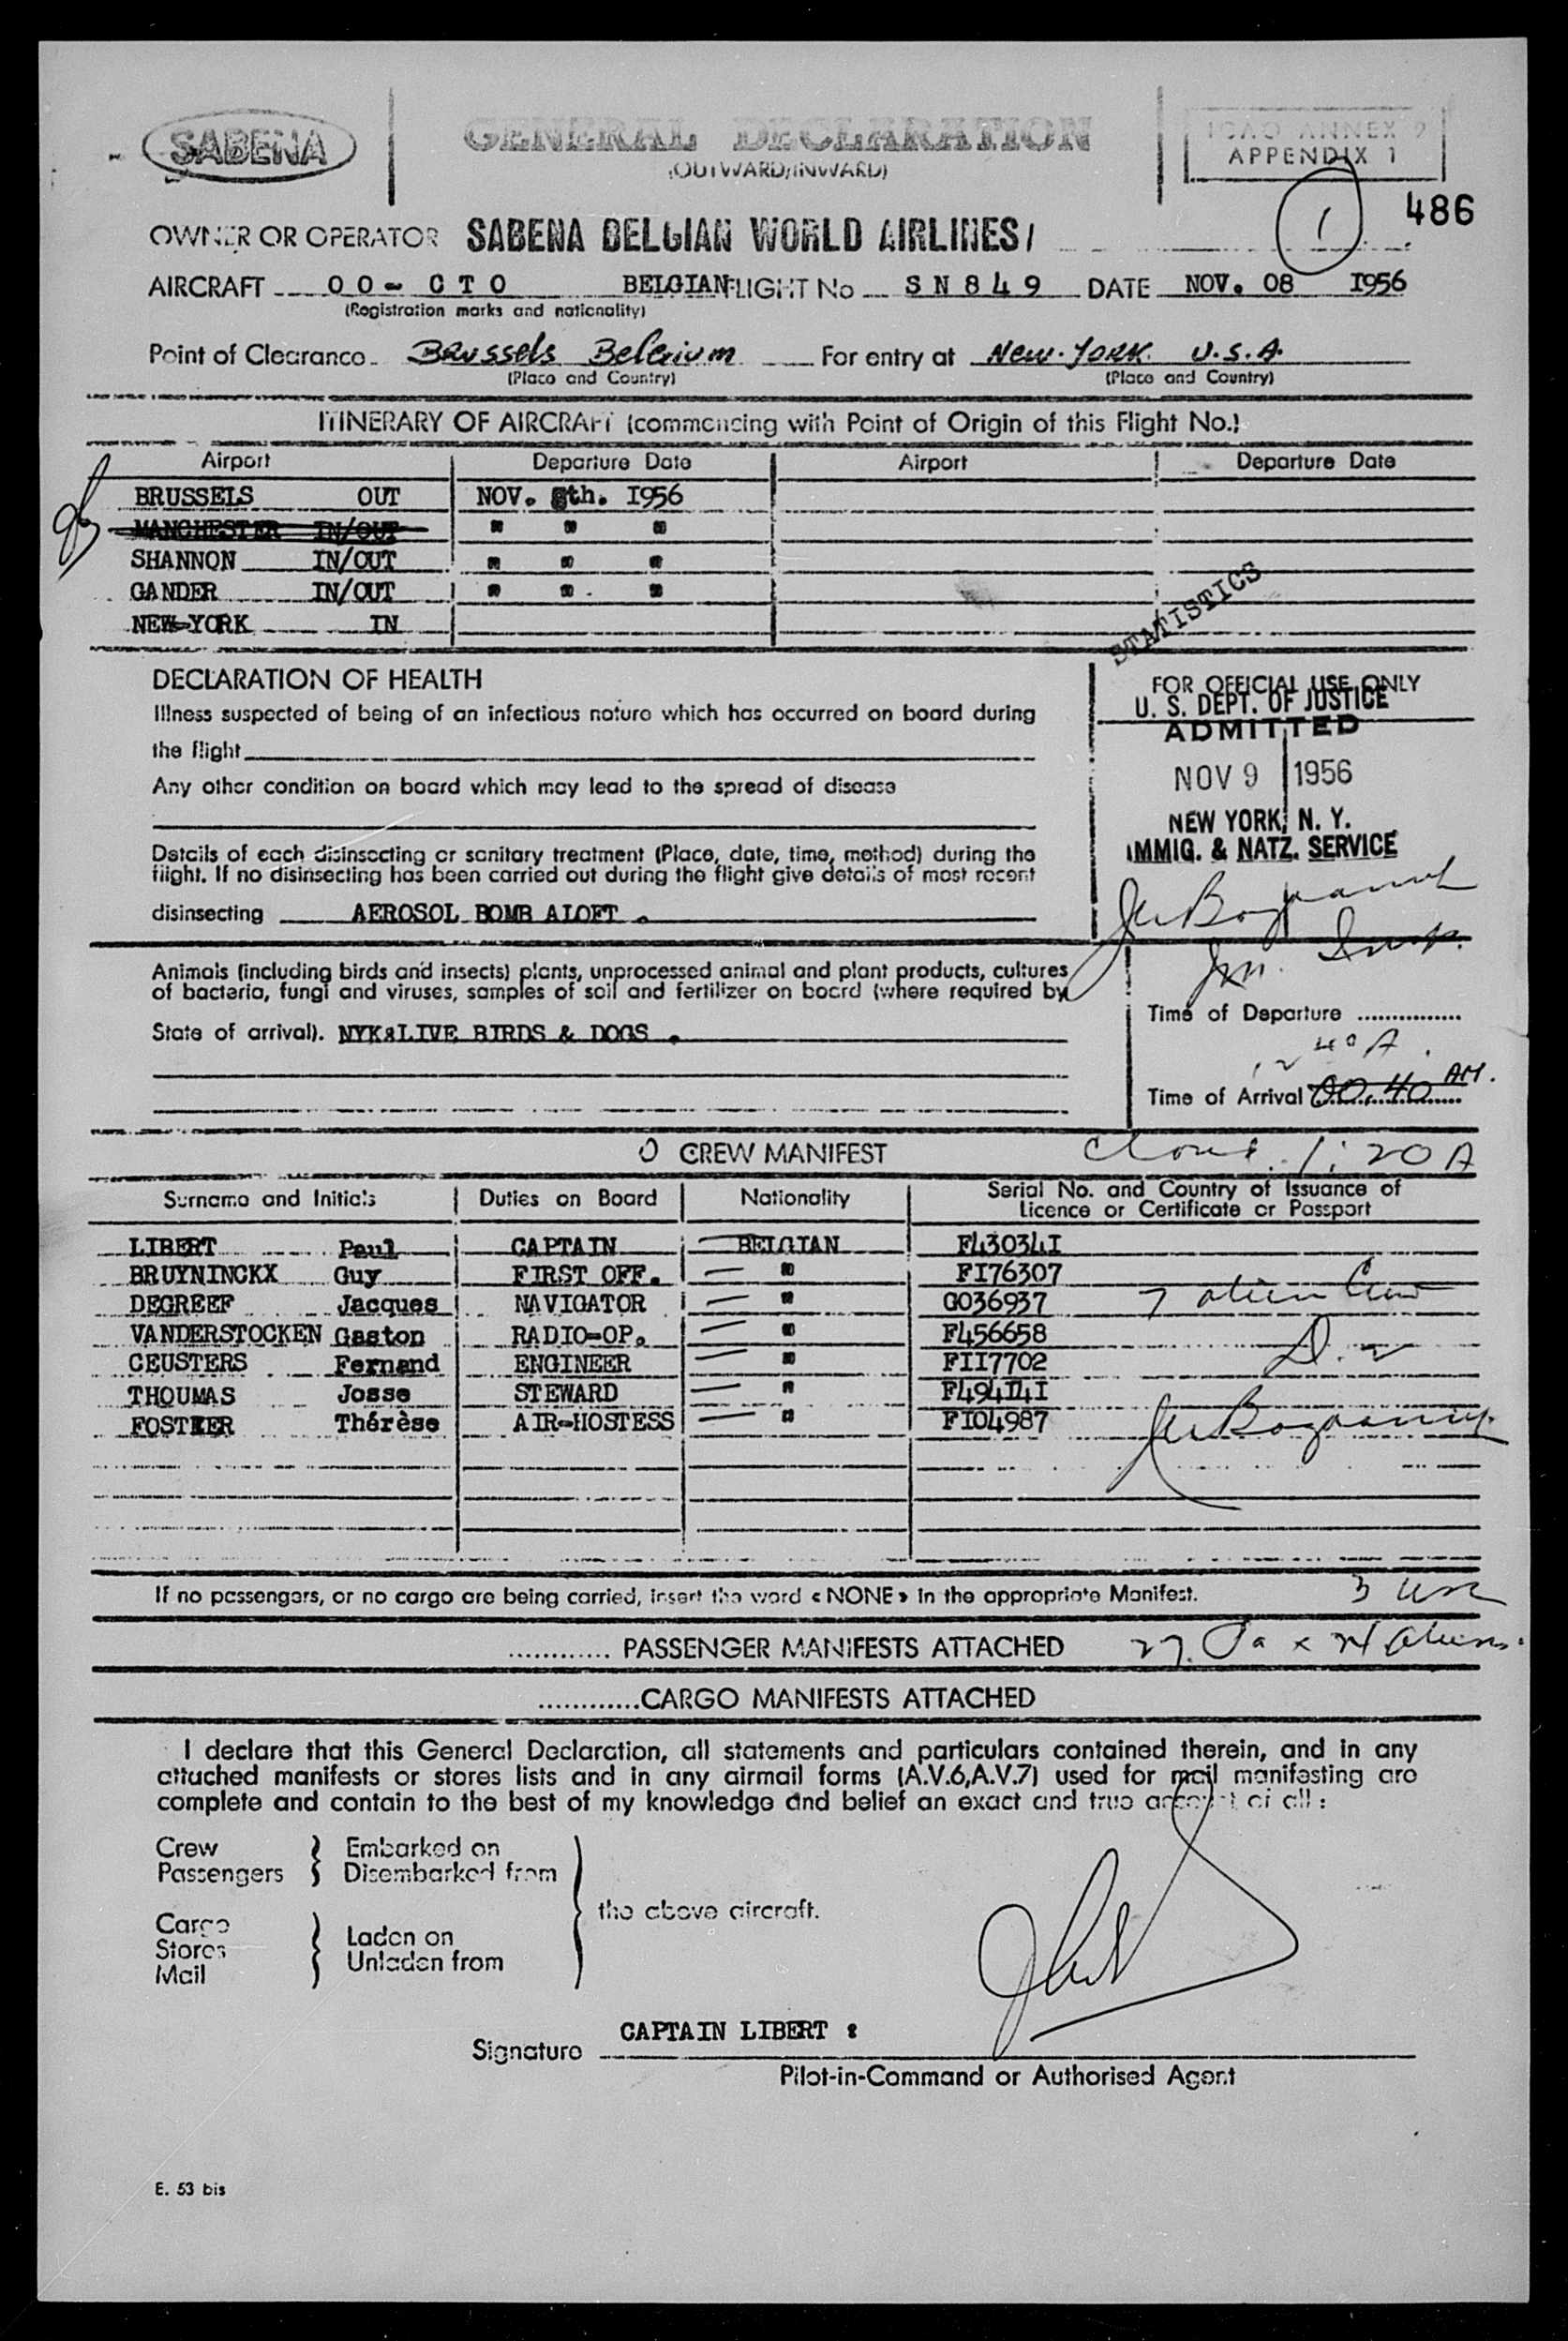 SABENA
GENERAL DECLARATION
(OUTWARD/INWARD)
ICAO ANNEX 9
APPENDIX 1
1
486
OWNER OR OPERATOR SABENA BELGIAN WORLD AIRLINES/
AIRCRAFT OO- CTO BELGIAN FLIGHT No SN849 DATE NOV. 08 I956
(Registration marks and nationality)
Point of Clearance Brussels Belgium For entry at New-York U.S.A.
(Place and Country) (Place and Country)
ITINERARY OF AIRCRAFT (commencing with Point of Origin of this Flight No.)
Airport Departure Date Airport Departure Date
BRUSSELS OUT NOV. 8th. I956
MANCHESTER IN/OUT " " "
SHANNON IN/OUT " " "
GANDER IN/OUT " " "
NEW-YORK IN
STATISTICS
DECLARATION OF HEALTH
Illness suspected of being of an infectious nature which has occurred on board during
the flight
Any other condition on board which may lead to the spread of disease
Details of each disinsecting or sanitary treatment (Place, date, time, method) during the
flight. If no disinsecting has been carried out during the flight give details of most recent
disinsecting AEROSOL BOMB ALOFT .
FOR OFFICIAL USE ONLY
U. S. DEPT. OF JUSTICE
ADMITTED
NOV 9 1956
NEW YORK, N. Y.
IMMIG. & NATZ. SERVICE
Animals (including birds and insects) plants, unprocessed animal and plant products, cultures
of bacteria, fungi and viruses, samples of soil and fertilizer on board (where required by
State of arrival). NYK:LIVE BIRDS & DOGS .
Im. Insp.
Time of Departure ...............
12 40 A
Time of Arrival 00.40 AM.
CREW MANIFEST
1:20 A
Surname and Initials Duties on Board Nationality Serial No. and Country of Issuance of
Licence or Certificate or Passport
LIBERT Paul CAPTAIN BELGIAN F43034I
BRUYNINCKX Guy FIRST OFF. " FI76307
DEGREEF Jacques NAVIGATOR " G036937 7 alien Crew
VANDERSTOCKEN Gaston RADIO-OP. " F456658
CEUSTERS Fernand ENGINEER " FII7702
THOUMAS Josse STEWARD " F494I4I
FOSTIER Thérèse AIR-HOSTESS " FI04987
If no passengers, or no cargo are being carried, insert the word « NONE » in the appropriate Manifest.
3 USC
............. PASSENGER MANIFESTS ATTACHED 27 Pax 24 Aliens
.............CARGO MANIFESTS ATTACHED
I declare that this General Declaration, all statements and particulars contained therein, and in any
attached manifests or stores lists and in any airmail forms (A.V.6,A.V.7) used for mail manifesting are
complete and contain to the best of my knowledge and belief an exact and true account of all :
Crew Embarked on
Passengers Disembarked from
the above aircraft.
Cargo
Stores Laden on
Mail Unladen from
CAPTAIN LIBERT :
Signature
Pilot-in-Command or Authorised Agent
E. 53 bis